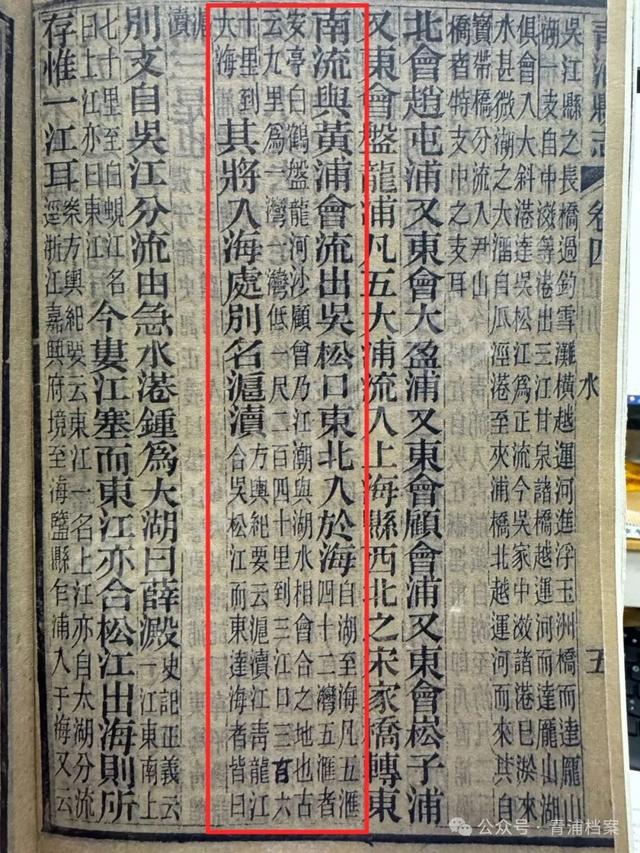 青浦縣志
卷四
山川
水
五
吳江縣之長橋過釣雪灘橫越運河進浮玉洲橋而達龎山
湖一支自中滧等港出三江甘泉諸橋越運河而達龎山湖
俱會入大斜港達吳松江爲正流今吳家中滧諸港已淤來
水甚微湖之大溜自瓜涇港至夾浦橋北越運河而來其自
寶帶橋分流入尹山
橋者特支中之支耳
北會趙屯浦又東會大盈浦又東會顧會浦又東會崧子浦
又東會盤龍浦凡五大浦流入上海縣西北之宋家橋轉東
南流與黃浦會流出吳松口東北入於海自湖至海凡五滙四十二灣五滙者
安亭白鶴盤龍河沙顧曾乃江潮與湖水相會合之地也古
云九里爲一灣一灣低一尺二百四十里到三江口三百六
十里到大海其將入海處別名滬瀆方輿紀要云滬瀆江青龍江合吳松江而東達海者皆曰
滬瀆
別支自吳江分流由急水港鍾爲大湖曰薛澱史記正義云一江東南上
七十里至白蜆江名曰上江亦曰東江今婁江塞而東江亦合松江出海則所
存惟一江耳案方輿紀要云東江一名上江亦自太湖分流逕浙江嘉興府境至海鹽縣乍浦入于海又云
公众号·青浦档案